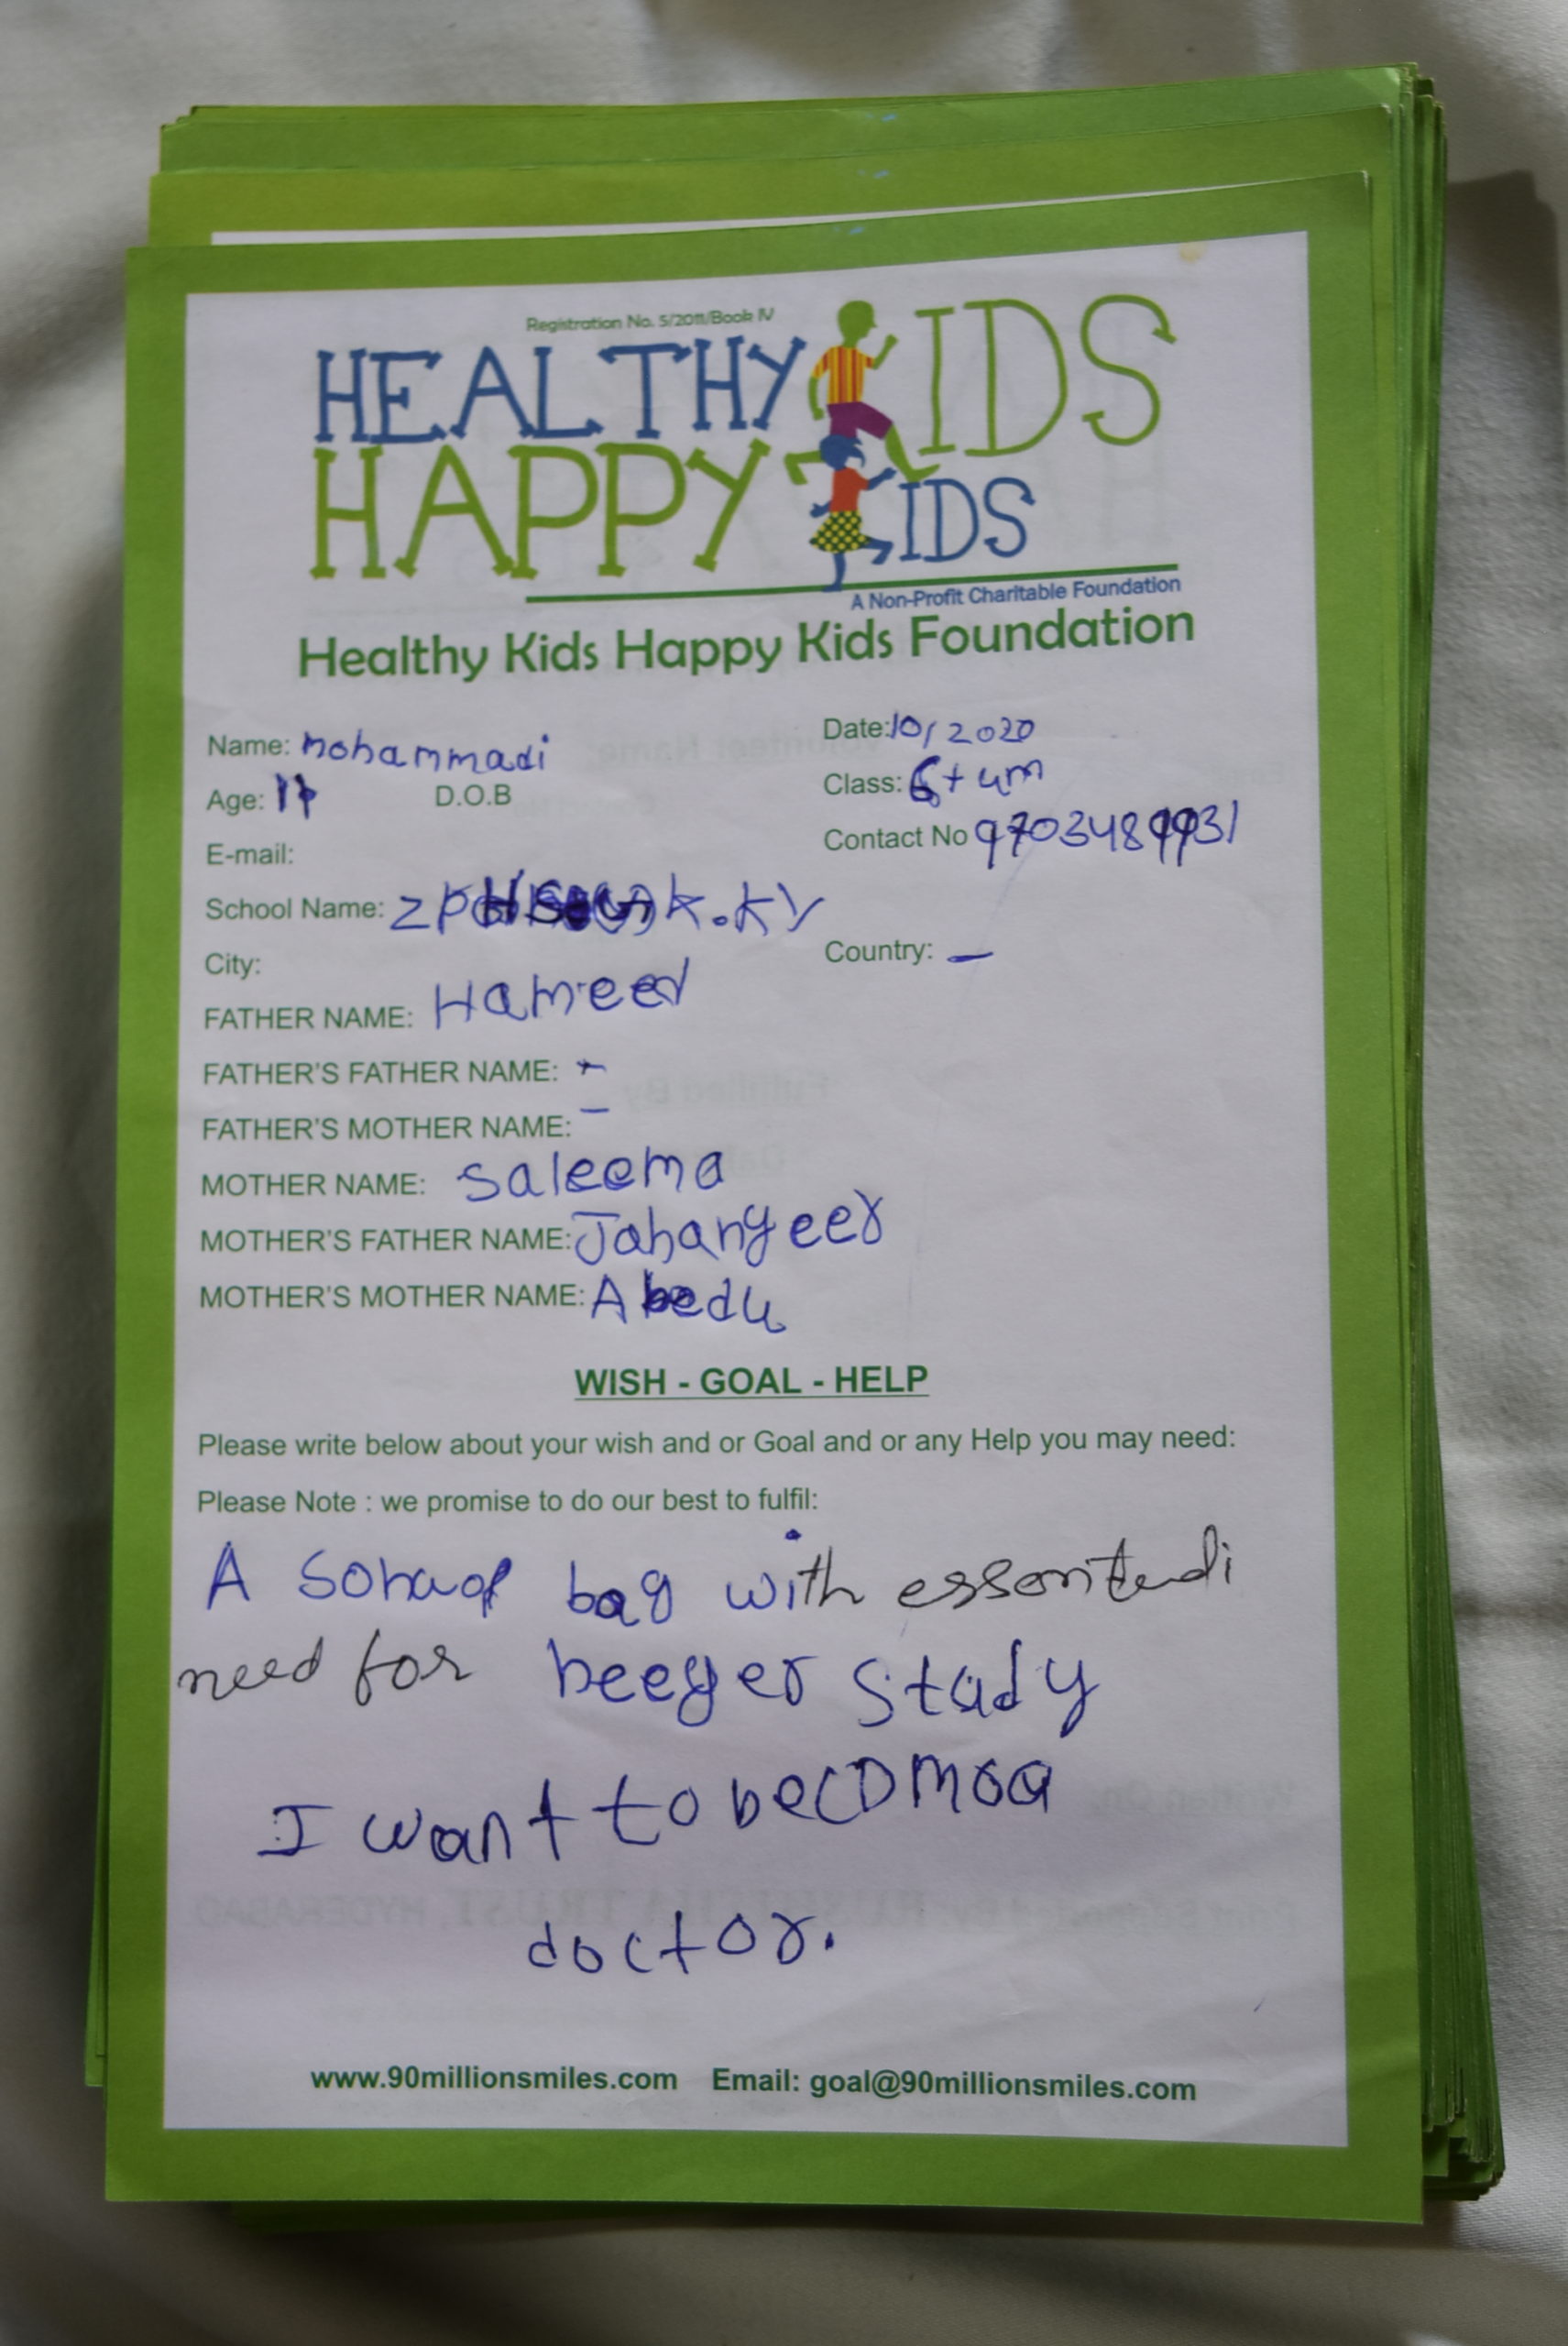 Registration No. 5/2011/Book IV
HEALTHY KIDS
HAPPY KIDS
A Non-Profit Charitable Foundation
Healthy Kids Happy Kids Foundation
Name: mohammadi Date: 10/2020
Age: 11 D.O.B Class: 6t um
E-mail: Contact No
School Name: k.ky
City: Country: –
FATHER NAME: Hameed
FATHER'S FATHER NAME: –
FATHER'S MOTHER NAME: –
MOTHER NAME: saleema
MOTHER'S FATHER NAME: Jahangeer
MOTHER'S MOTHER NAME:
WISH - GOAL - HELP
Please write below about your wish and or Goal and or any Help you may need:
Please Note : we promise to do our best to fulfil:
A bag with
need for study
I want to becomea
doctor.
www.90millionsmiles.com Email: goal@90millionsmiles.com